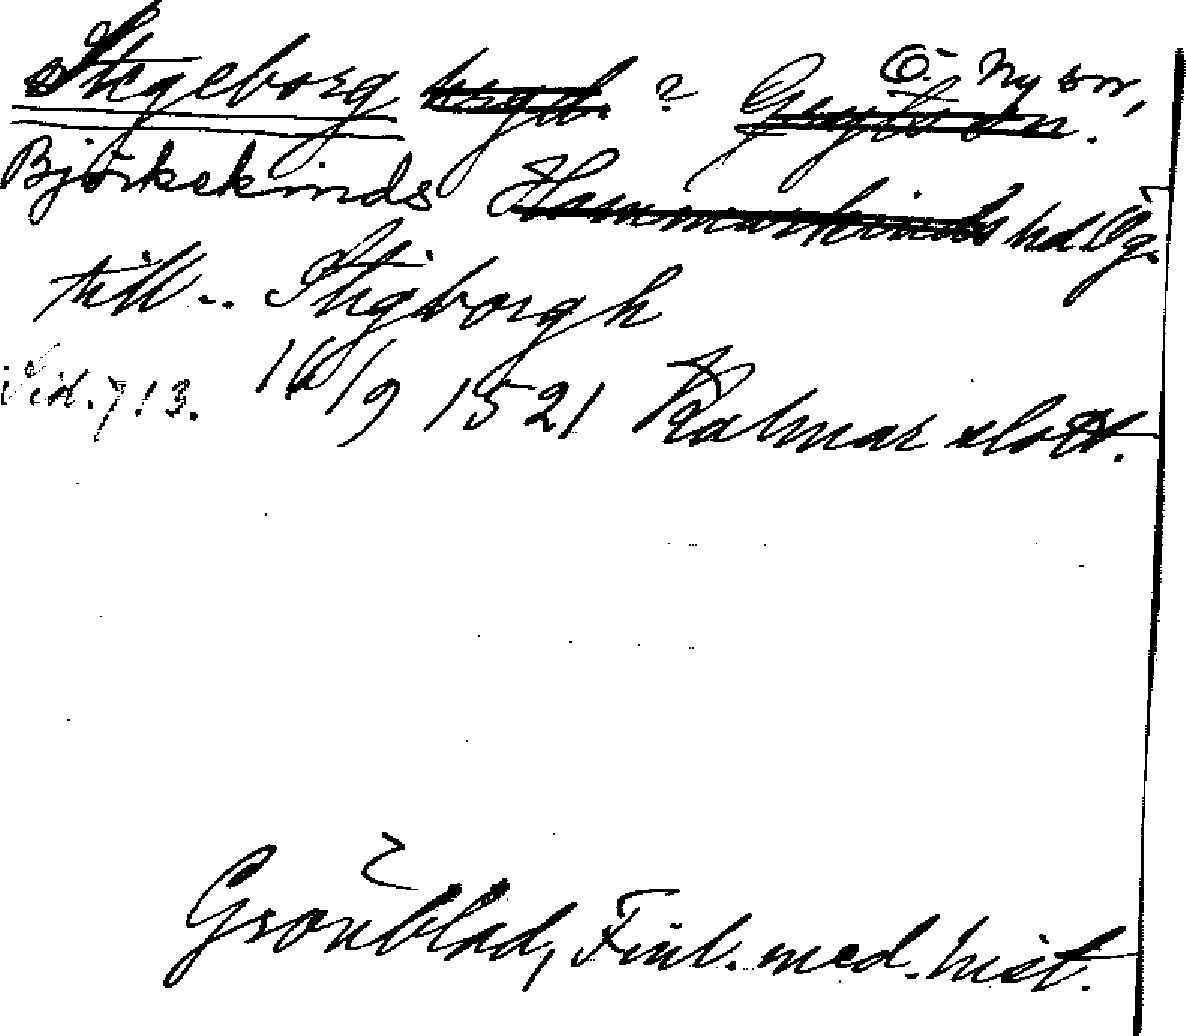 Stegeborg borgd. ? Ö. Ny sn,
Björkekinds Hammarkinds hd Ög.
till.. Stigborgh
Vid. 713. 16/9 1521 Kalmar slott.
Grönblad, Finl. med. hist.